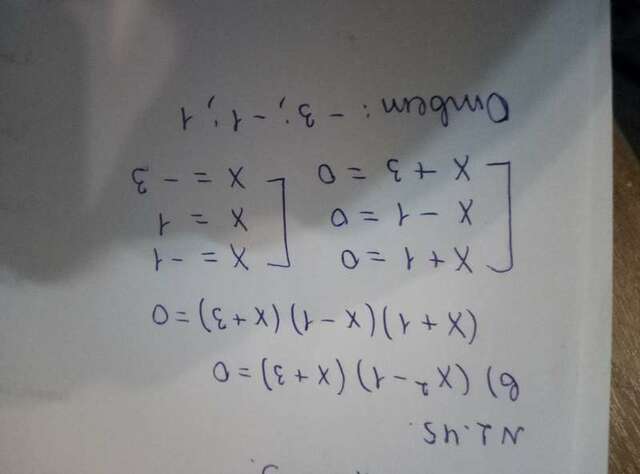 N 2.45.
в) (x² - 1)(x + 3) = 0
(x + 1)(x - 1)(x + 3) = 0
[ x + 1 = 0 [ x = -1
x - 1 = 0 x = 1
x + 3 = 0 x = - 3
Ответ: - 3 ; - 1 ; 1